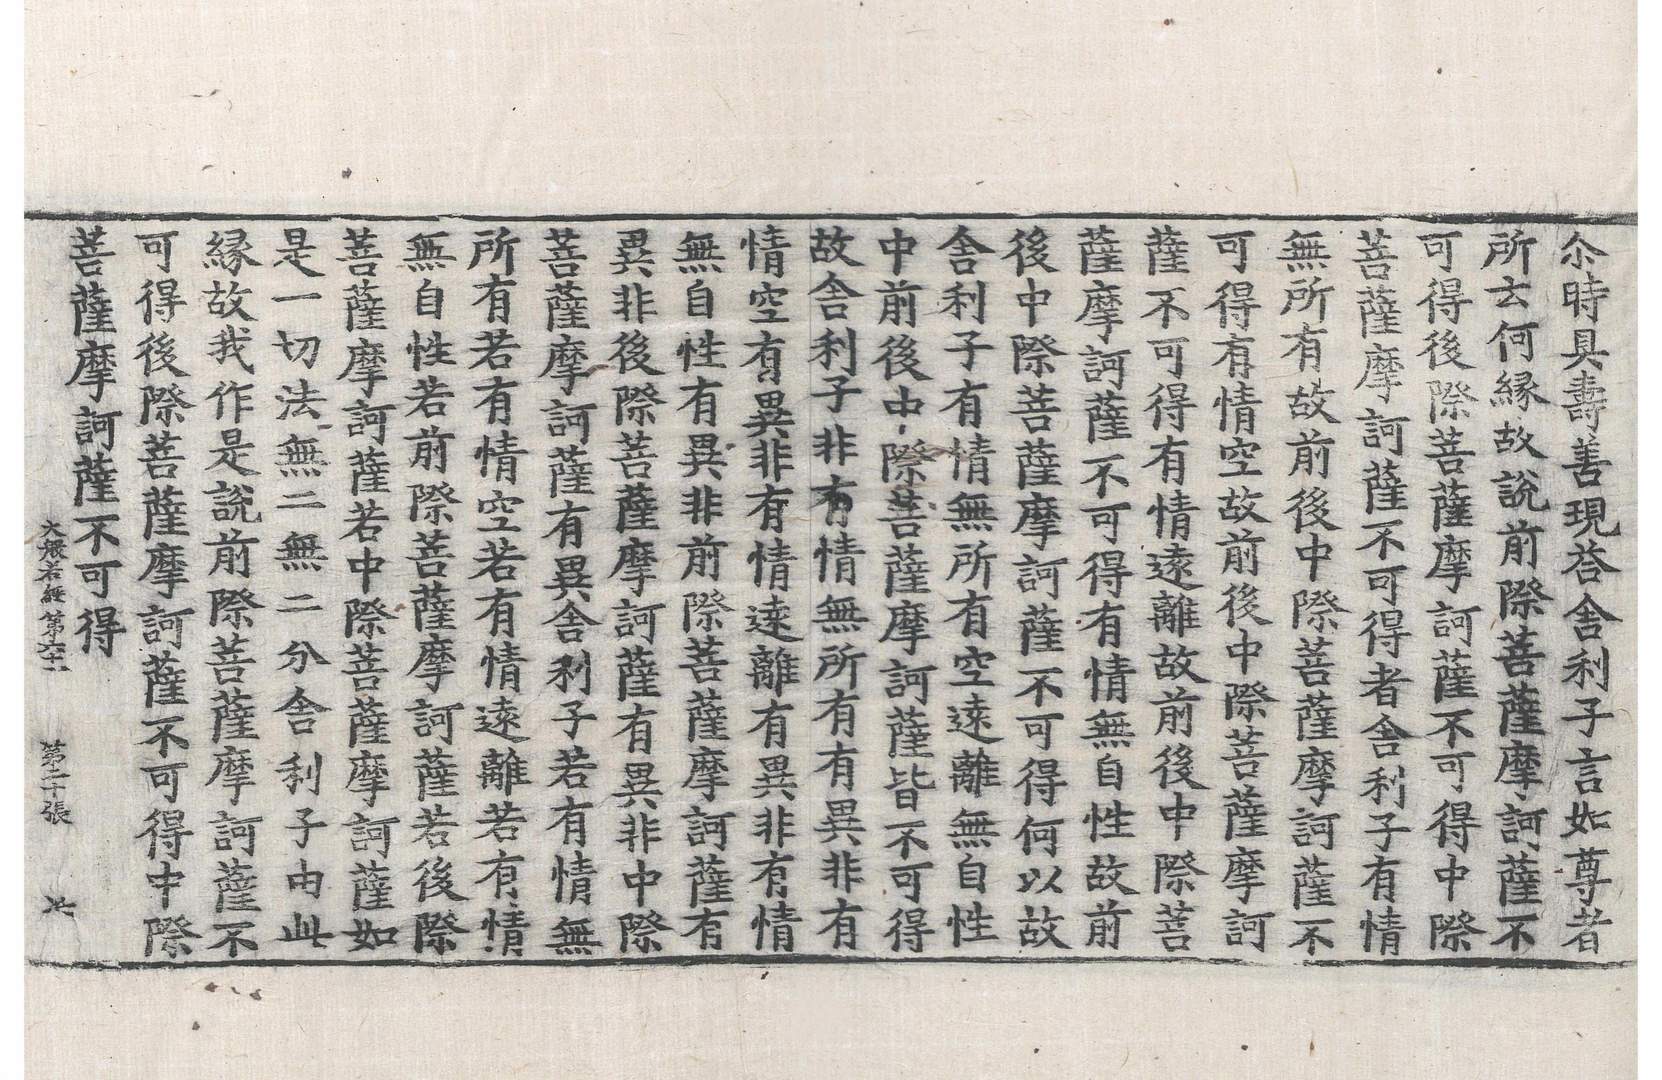 尒時具壽善現荅舍利子言如尊者
所云何緣故說前際菩薩摩訶薩不
可得後際菩薩摩訶薩不可得中際
菩薩摩訶薩不可得者舍利子有情
無所有故前後中際菩薩摩訶薩不
可得有情空故前後中際菩薩摩訶
薩不可得有情遠離故前後中際菩
薩摩訶薩不可得有情無自性故前
後中際菩薩摩訶薩不可得何以故
舍利子有情無所有空遠離無自性
中前後中際菩薩摩訶薩皆不可得
故舍利子非有情無所有有異非有
情空有異非有情遠離有異非有情
無自性有異非前際菩薩摩訶薩有
異非後際菩薩摩訶薩有異非中際
菩薩摩訶薩有異舍利子若有情無
所有若有情空若有情遠離若有情
無自性若前際菩薩摩訶薩若後際
菩薩摩訶薩若中際菩薩摩訶薩如
是一切法無二無二分舍利子由此
緣故我作是說前際菩薩摩訶薩不
可得後際菩薩摩訶薩不可得中際
菩薩摩訶薩不可得
大般若經第六十一 第二十張